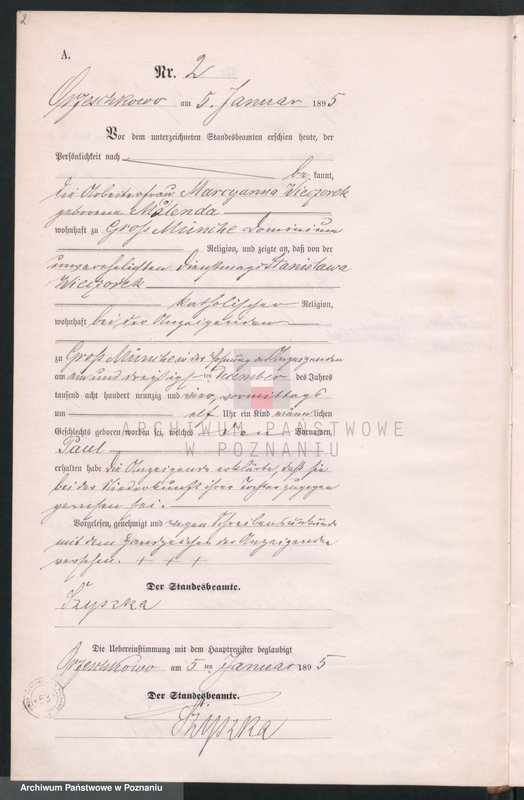 2
A.
Nr. 2
Orzeschkowo am 5. Januar 1895
Vor dem unterzeichneten Standesbeamten erschien heute, der
Persönlichkeit nach
be kannt,
die Arbeiterfrau Maryanna Wieczorek
geborene Malenda
wohnhaft zu Groß Münche Dominium
Religion, und zeigte an, daß von der
unverehelichten Dienstmagd Stanislawa
Wieczorek
katholischer Religion,
wohnhaft bei der Anzeigenden
zu Groß Münche in der Wohnung der Anzeigenden
am ein und dreißigsten Dezember des Jahres
tausend acht hundert neunzig und vier, vormittags
um elf Uhr ein Kind männ lichen
Geschlechts geboren worden sei, welches den Vornamen
Paul
erhalten habe die Anzeigende erklärte, daß sie
bei der Niederkunft ihrer Tochter zugegen
gewesen sei.
Vorgelesen, genehmigt und wegen Schreibensunkunde
mit dem Handzeichen der Anzeigenden
versehen. + + +
Der Standesbeamte.
Szyszka
Die Uebereinstimmung mit dem Hauptregister beglaubigt
Orzeschkowo am 5 ten Januar 1895
Der Standesbeamte.
Szyszka
ARCHIWUM PAŃSTWOWE
W POZNANIU
Archiwum Państwowe w Poznaniu